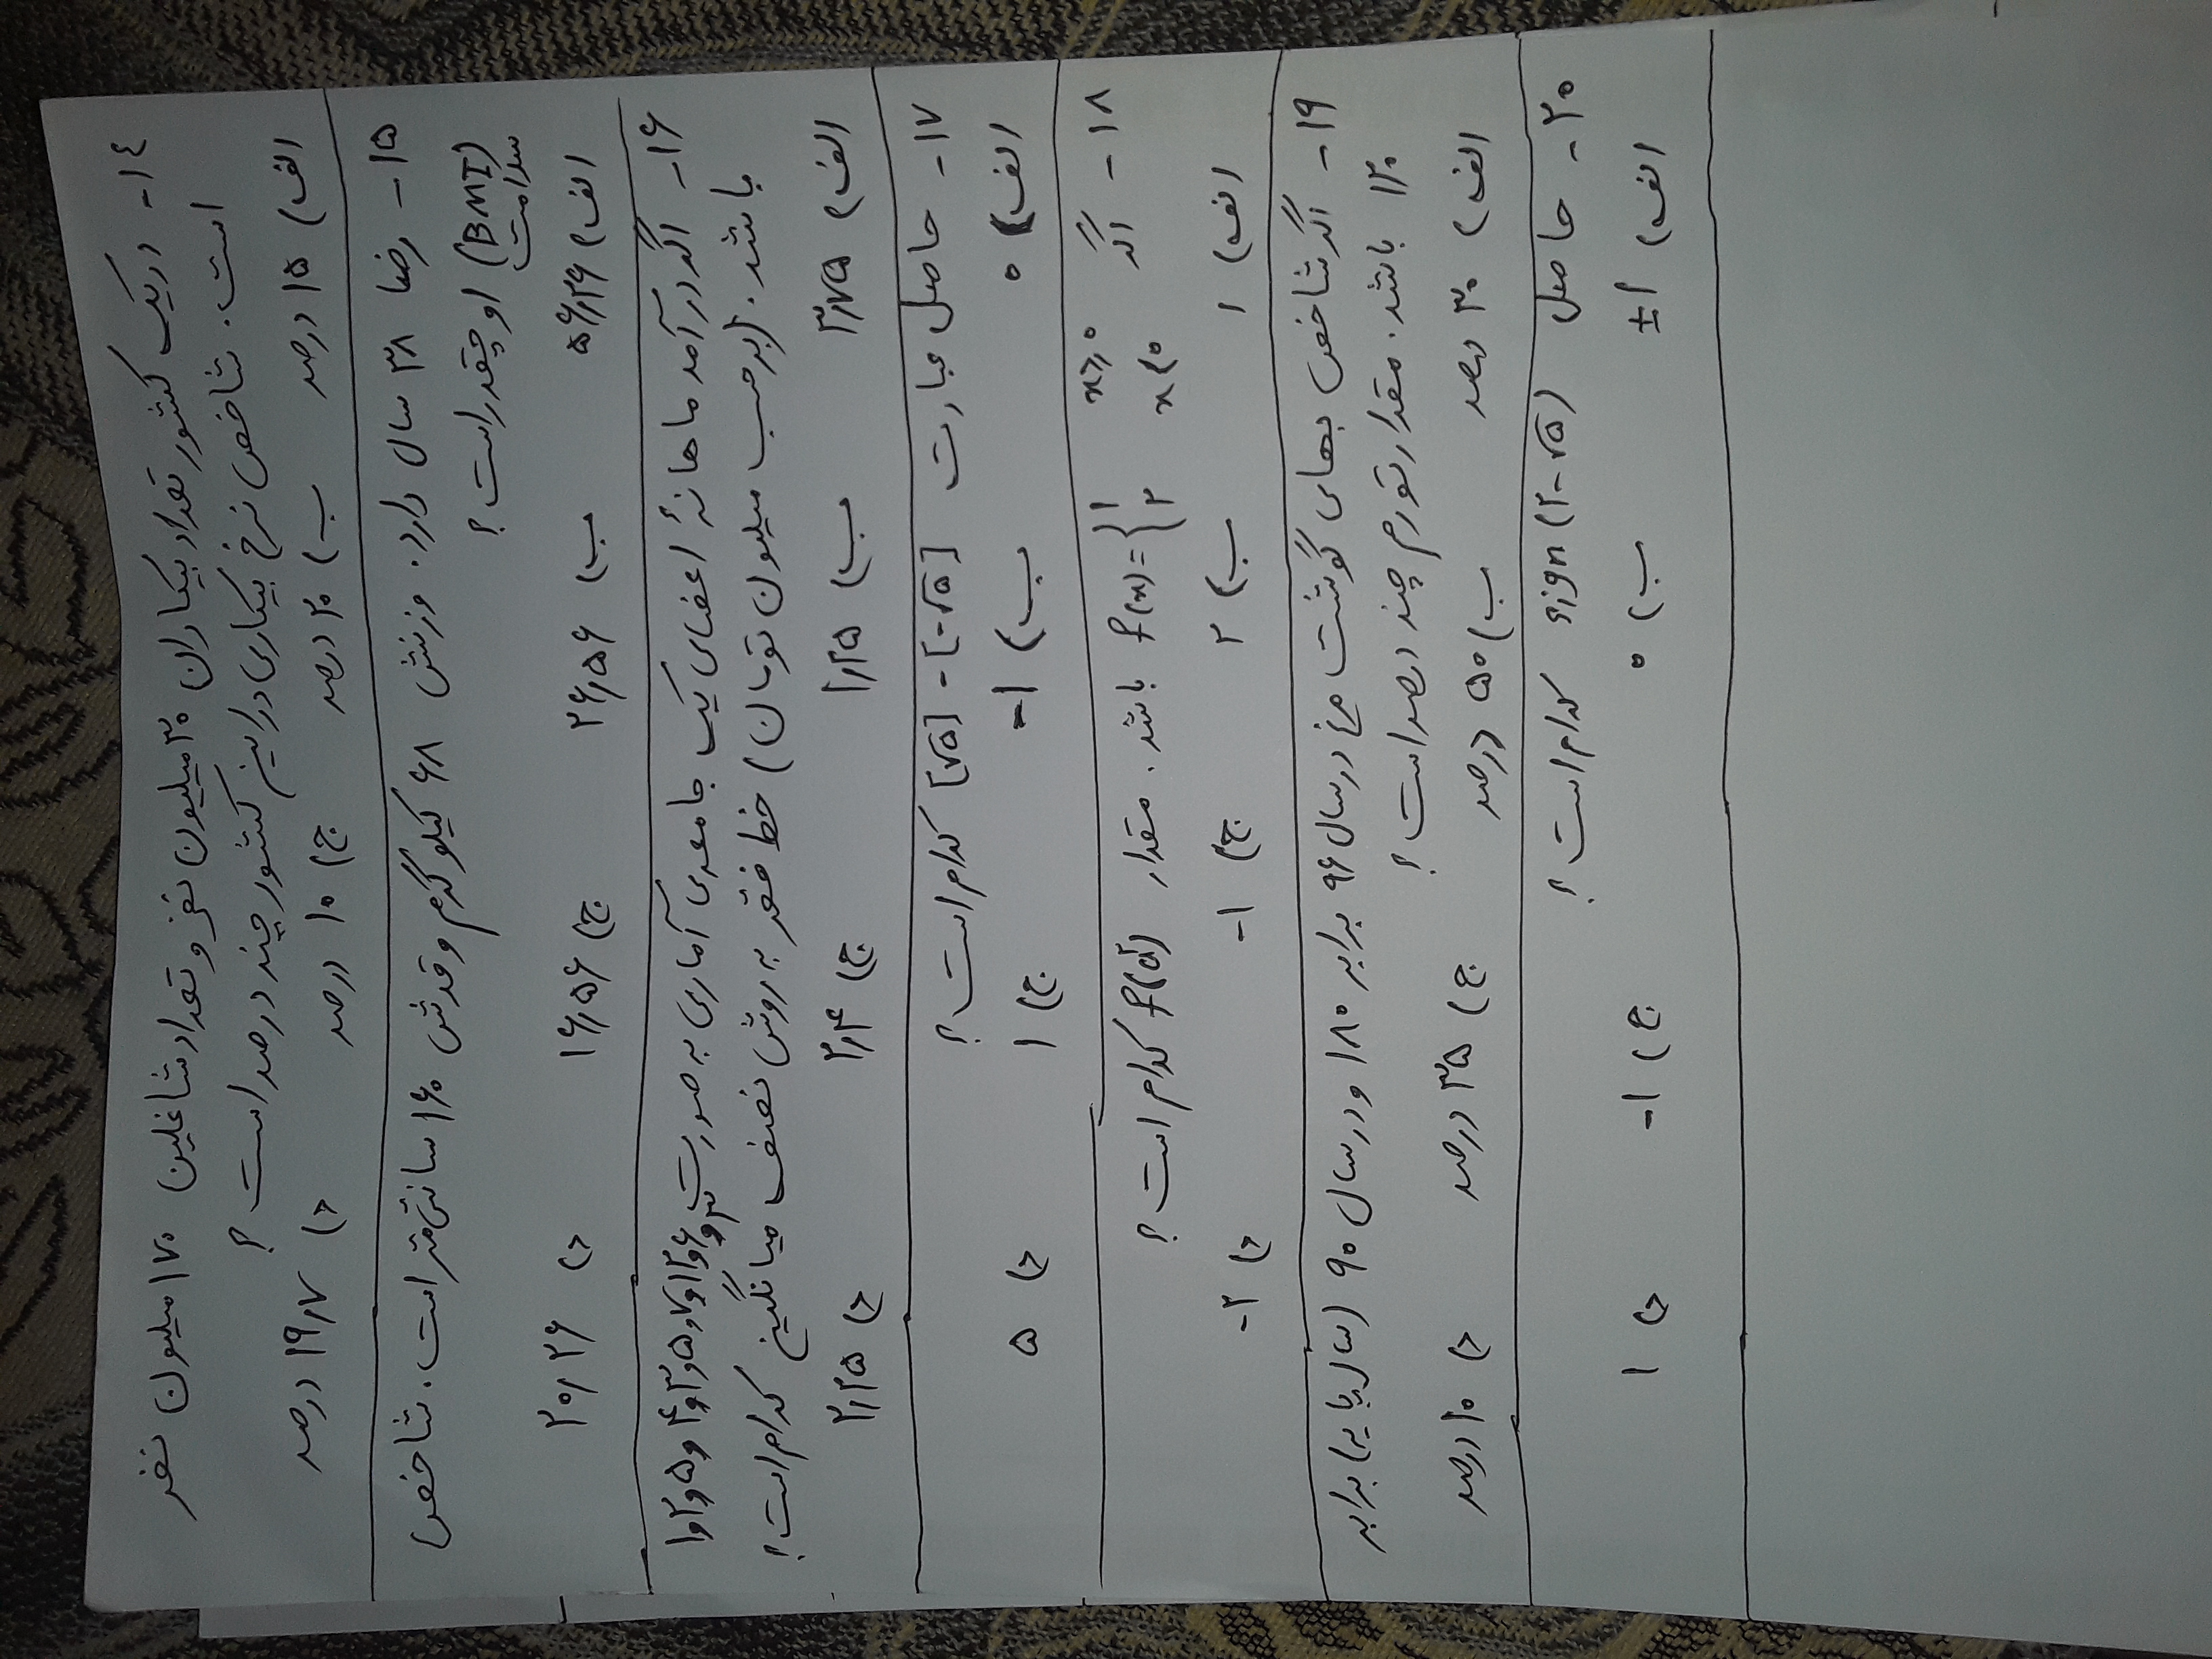 ۱۴- در یک کشور تعداد بیکاران ۳۰ میلیون نفر و تعداد شاغلین ۱۷۰ میلیون نفر
است. شاخص نرخ بیکاری در این کشور چند درصد است؟
الف) ۱۵ درصد ب) ۲۰ درصد ج) ۱۰ درصد د) ۱۹٫۷ درصد
۱۵- رضا ۳۸ سال دارد. وزنش ۶۸ کیلوگرم و قدش ۱۶۰ سانتی‌متر است. شاخص
سلامت (BMI) او چقدر است؟
الف) ۵۶٫۲۶ ب) ۲۶٫۵۶ ج) ۱۶٫۵۶ د) ۲۰٫۲۶
۱۶- اگر درآمد ماهانهٔ اعضای یک جامعه‌ی آماری به صورت ۱و۲و۵و۴و۳و۵و۷و۱۲و۶و۳
باشد. (برحسب میلیون تومان) خط فقر به روش نصف میانگین کدام است؟
الف) ۳٫۷۵ ب) ۱٫۲۵ ج) ۲٫۴ د) ۲٫۲۵
۱۷- حاصل عبارت [√۵] - [-√۵] کدام است؟
الف) ۰ ب) -۱ ج) ۱ د) ۵
۱۸- اگر f(x) = { ۱ x ≥ ۰ ، ۲ x < ۰ باشد. مقدار f(a²) کدام است؟
الف) ۱ ب) ۲ ج) -۱ د) -۲
۱۹- اگر شاخص بهای گوشت مرغ در سال ۹۶ برابر ۱۸۰ و در سال ۹۰ (سال پایه) برابر
۱۲۰ باشد. مقدار تورم چند درصد است؟
الف) ۳۰ درصد ب) ۵۰ درصد ج) ۳۵ درصد د) ۱۰ درصد
۲۰- حاصل sign(۲-√۵) کدام است؟
الف) ±۱ ب) ۰ ج) -۱ د) ۱